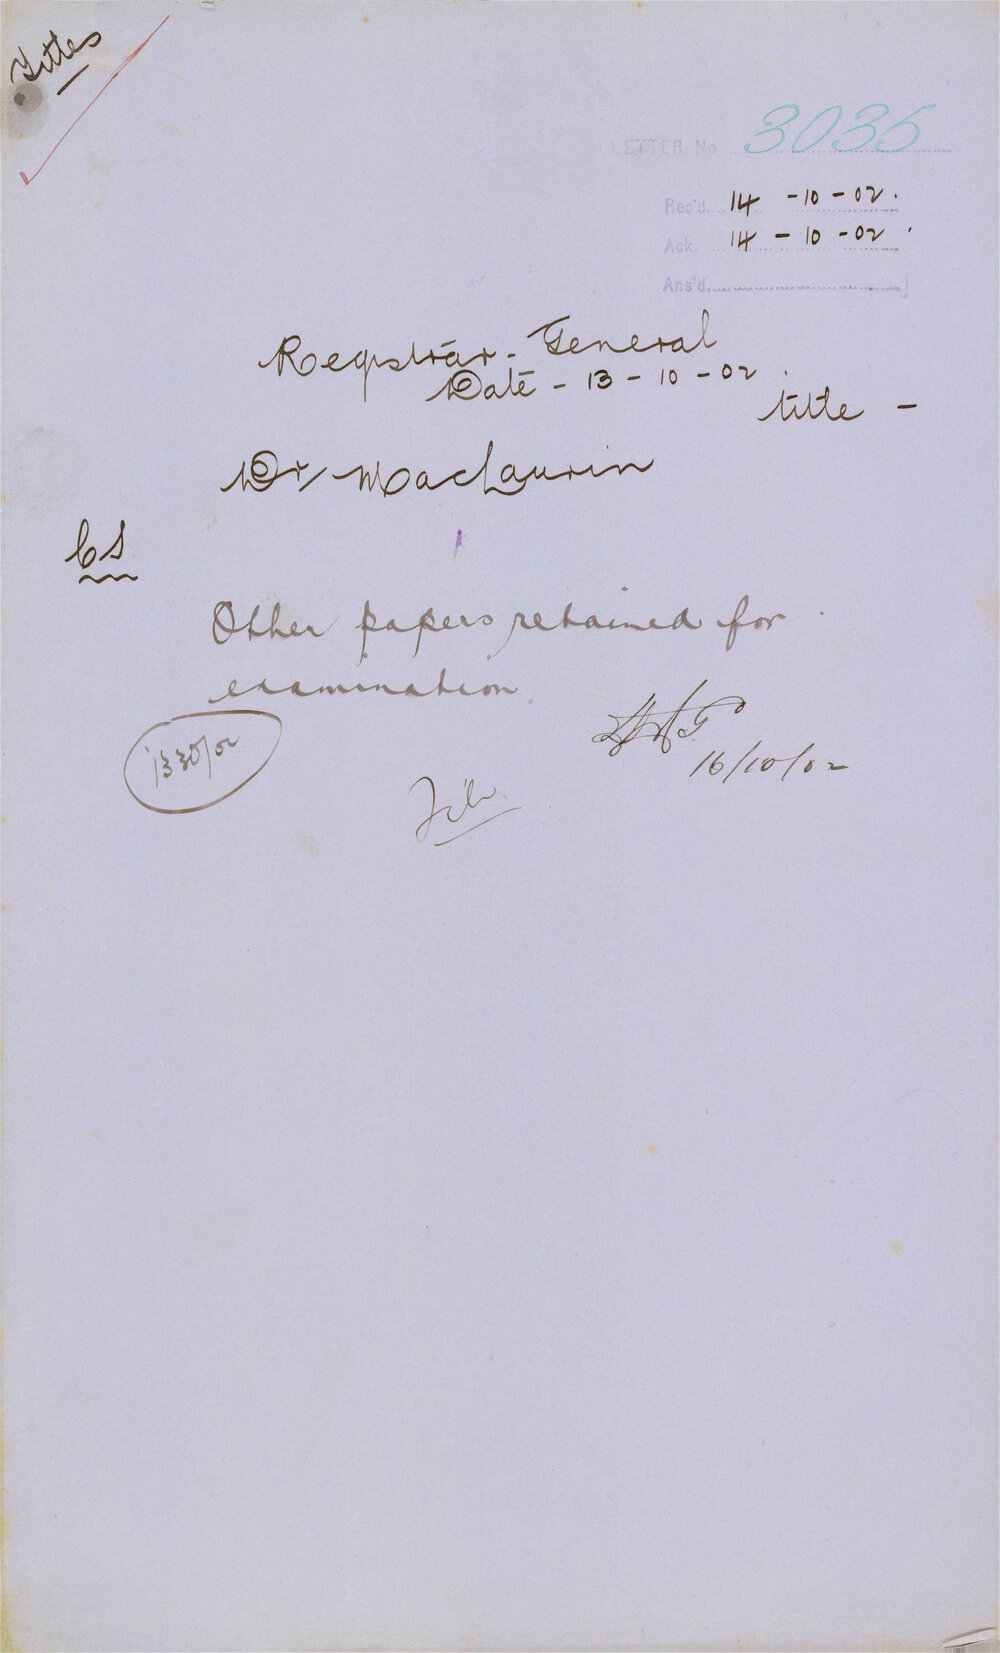 Titles
LETTER No 3035
Rec'd. 14 - 10 - 02.
Ack. 14 - 10 - 02.
Ans'd.
Registrar-General
Date - 13 - 10 - 02.
title -
Dr MacLaurin
CS
Other papers retained for
examination
1330/02
16/10/02
File